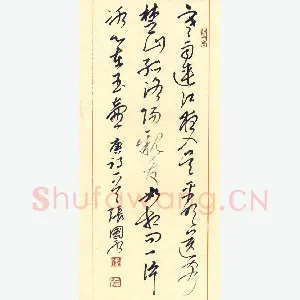 寒雨連江夜入吴平明送客
楚山孤洛陽親友如相問一片
冰心在玉壺 唐詩一首 張國
Shufawang.CN